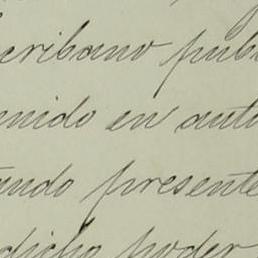 cribano pub
enido en auto
ando presente
dicho poder